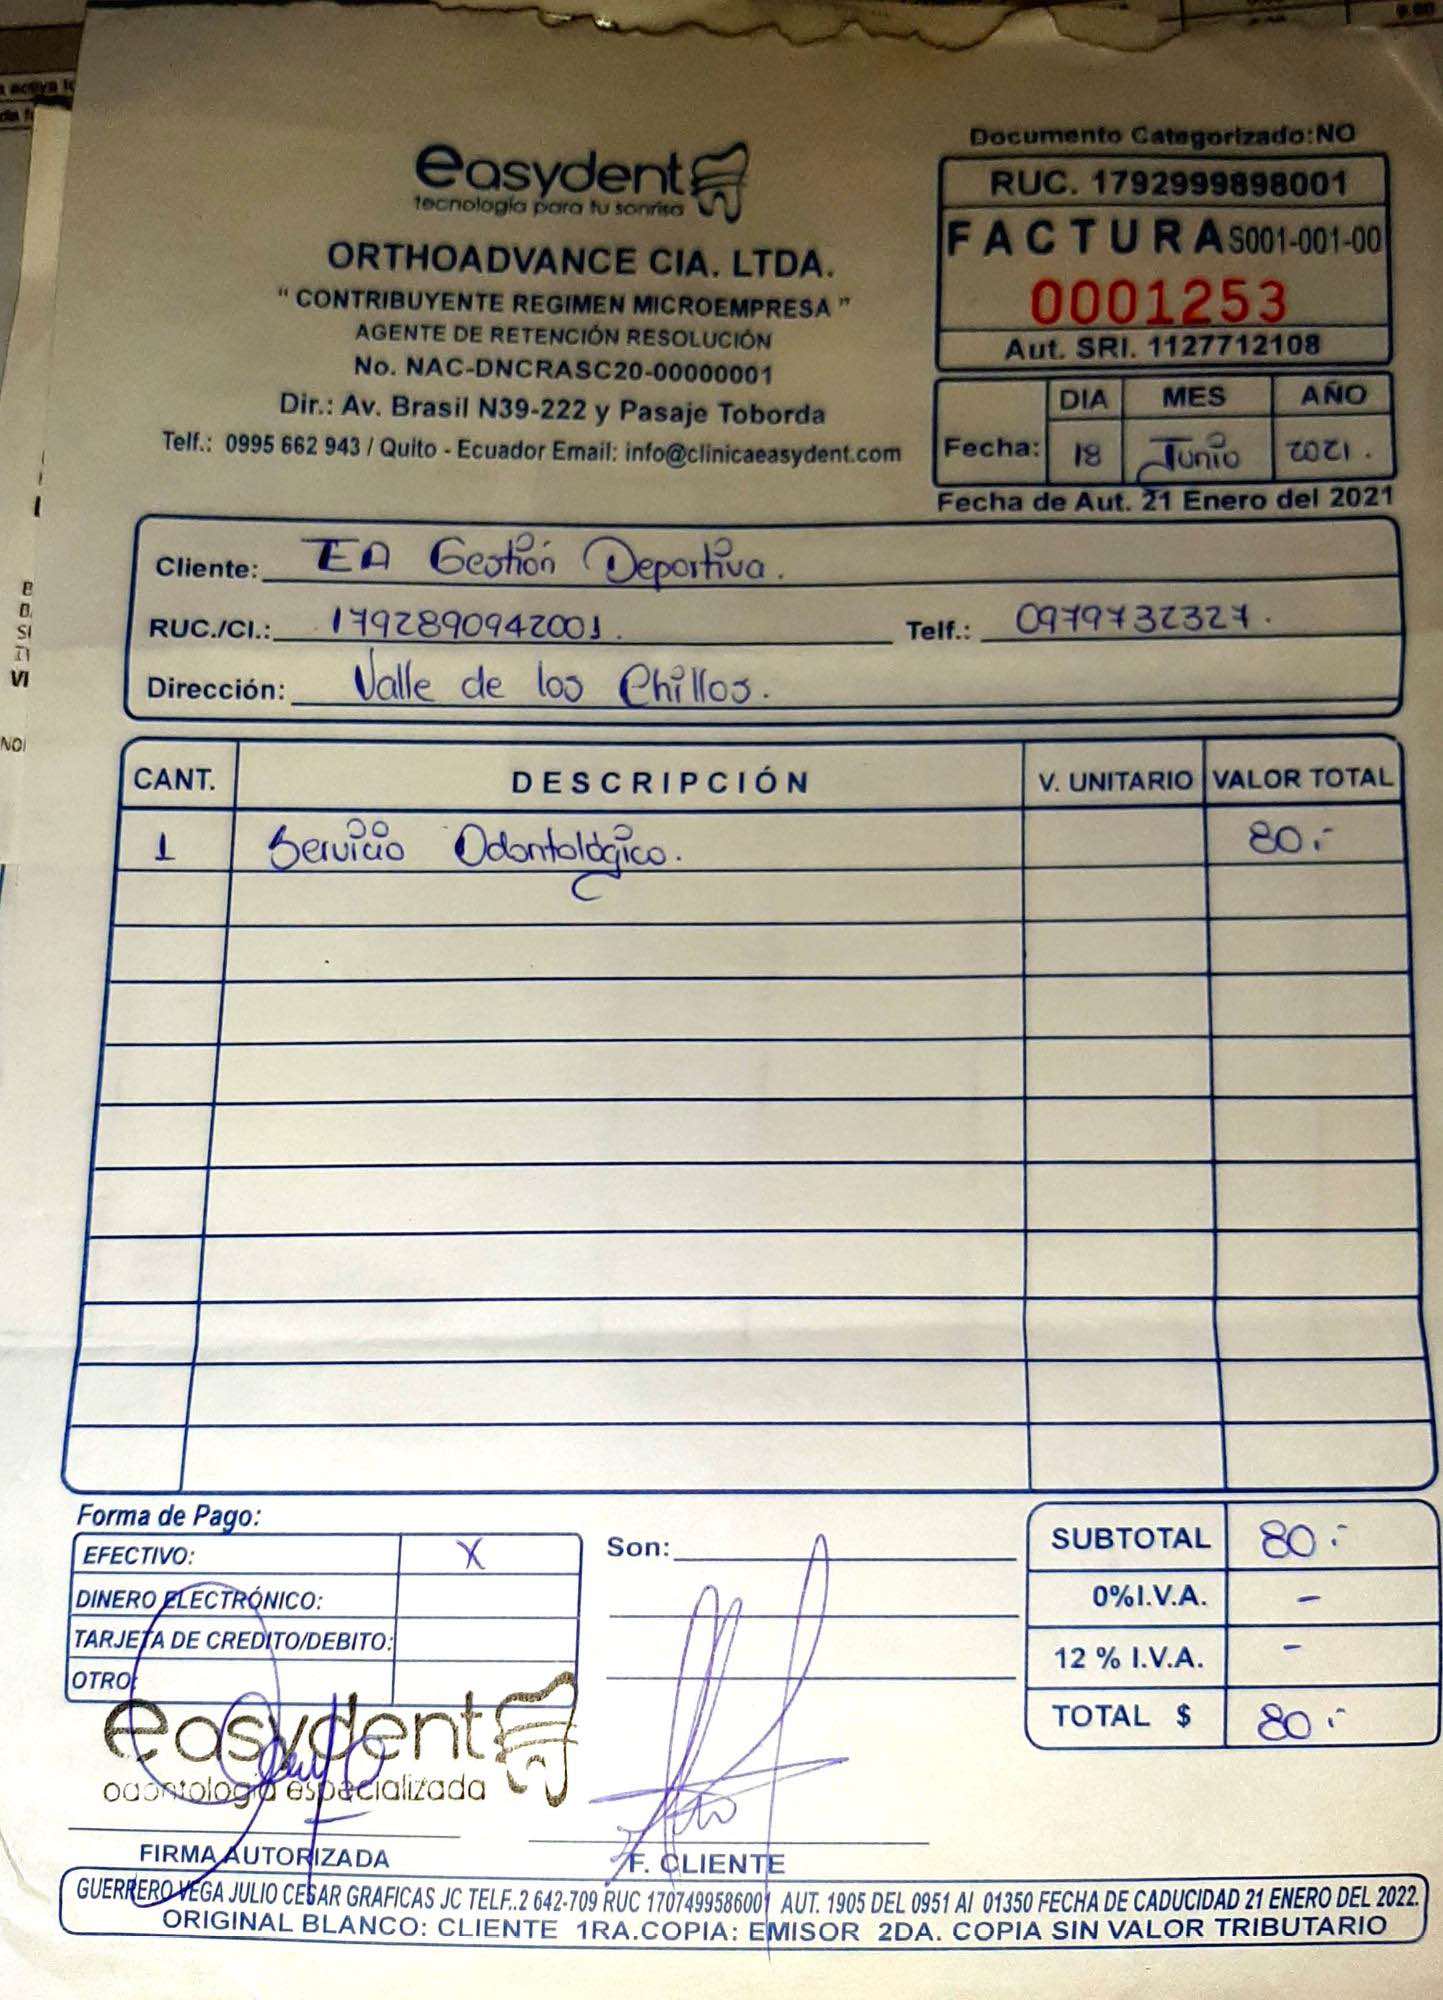 easydent
tecnología para tu sonrisa
ORTHOADVANCE CIA. LTDA.
" CONTRIBUYENTE REGIMEN MICROEMPRESA "
AGENTE DE RETENCIÓN RESOLUCIÓN
No. NAC-DNCRASC20-00000001
Dir.: Av. Brasil N39-222 y Pasaje Toborda
Telf.: 0995 662 943 / Quito - Ecuador Email: info@clinicaeasydent.com
Documento Categorizado:NO
RUC. 1792999898001
FACTURA S001-001-00
0001253
Aut. SRI. 1127712108
DIA MES AÑO
Fecha: 18 Junio 2021.
Fecha de Aut. 21 Enero del 2021
Cliente: EA Gestión Deportiva.
RUC./CI.: 1792890942001. Telf.: 0979732327.
Dirección: Valle de los Chillos.
CANT. DESCRIPCIÓN V. UNITARIO VALOR TOTAL
1 Servicio Odontológico. 80.-
Forma de Pago:
EFECTIVO: X
DINERO ELECTRÓNICO:
TARJETA DE CREDITO/DEBITO:
OTRO:
Son:
SUBTOTAL 80.-
0%I.V.A. -
12 % I.V.A. -
TOTAL $ 80.-
easydent
odontología especializada
FIRMA AUTORIZADA
F. CLIENTE
GUERRERO VEGA JULIO CESAR GRAFICAS JC TELF.:2 642-709 RUC 1707499586001 AUT. 1905 DEL 0951 Al 01350 FECHA DE CADUCIDAD 21 ENERO DEL 2022.
ORIGINAL BLANCO: CLIENTE 1RA.COPIA: EMISOR 2DA. COPIA SIN VALOR TRIBUTARIO